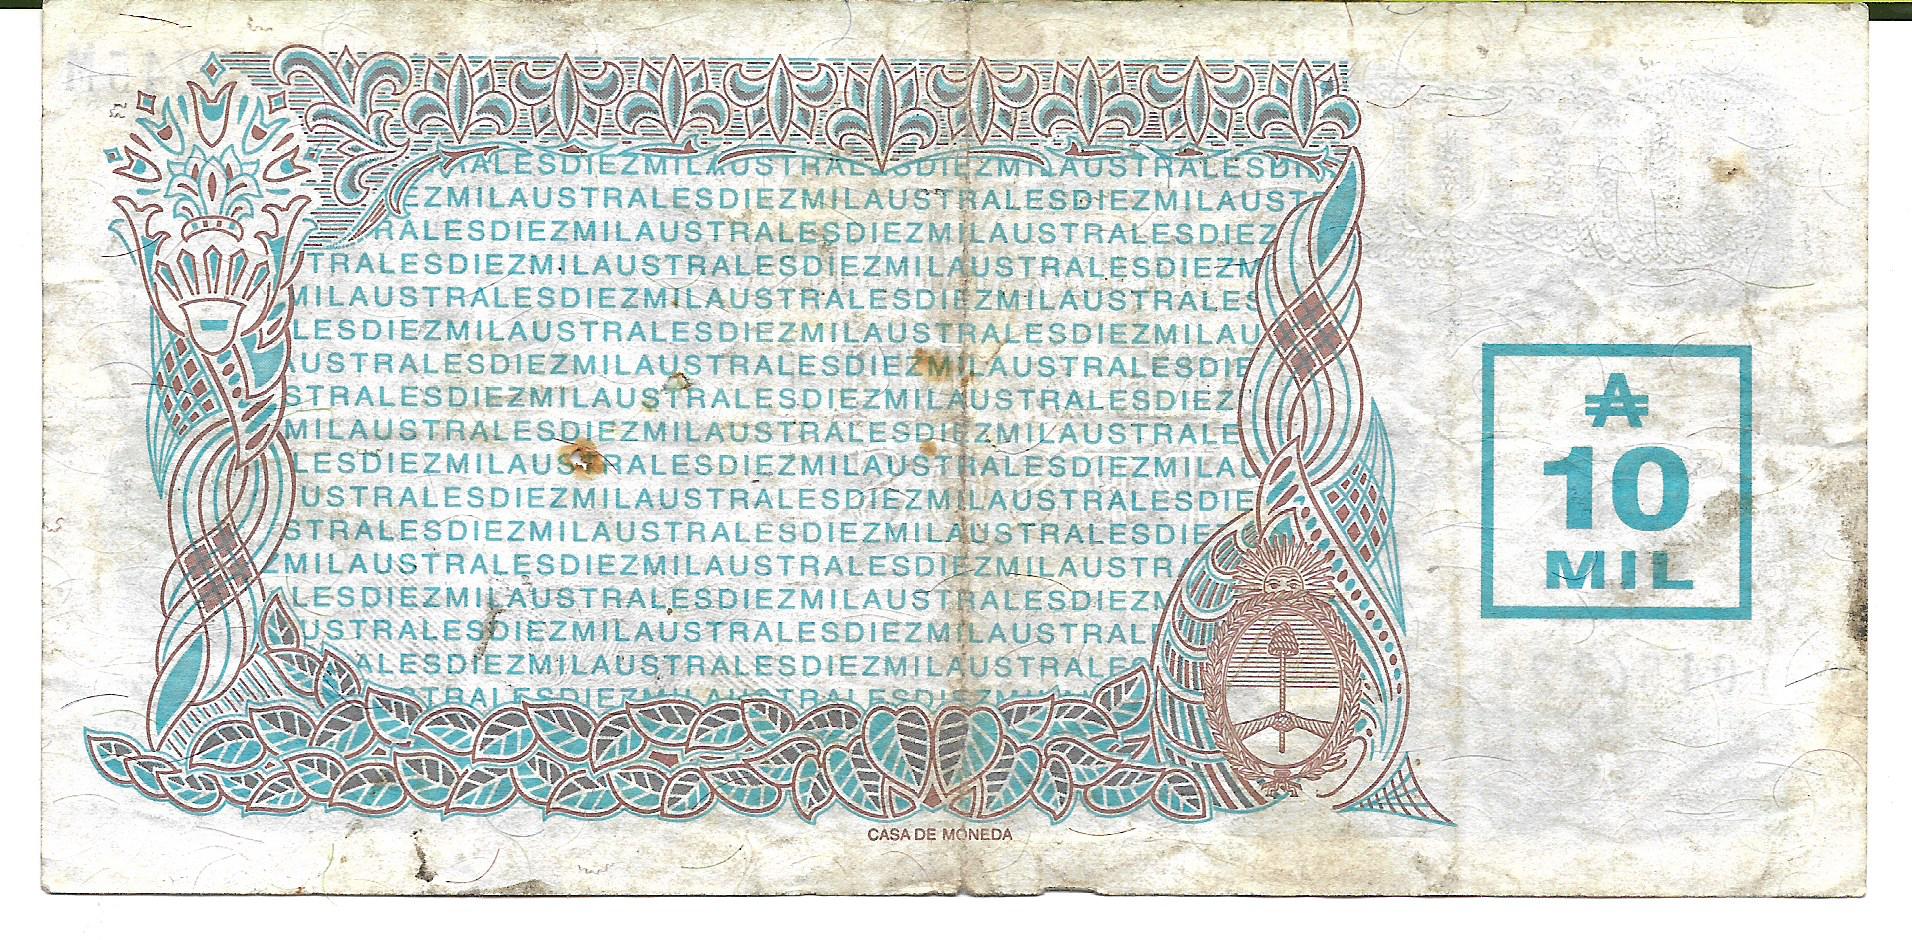 ALESDIEZMILAUSTRALESDIEZMILAUSTRALESDI
EZMILAUSTRALESDIEZMILAUSTRALESDIEZMILAUST
RALESDIEZMILAUSTRALESDIEZMILAUSTRALESDIEZ
TRALESDIEZMILAUSTRALESDIEZMILAUSTRALESDIEZM
MILAUSTRALESDIEZMILAUSTRALESDIEZMILAUSTRALES
LESDIEZMILAUSTRALESDIEZMILAUSTRALESDIEZMILAU
AUSTRALESDIEZMILAUSTRALESDIEZMILAUSTRALESDIE
STRALESDIEZMILAUSTRALESDIEZMILAUSTRALESDIEZ
MILAUSTRALESDIEZMILAUSTRALESDIEZMILAUSTRALE
LESDIEZMILAUSTRALESDIEZMILAUSTRALESDIEZMILAU
USTRALESDIEZMILAUSTRALESDIEZMILAUSTRALESDIE
STRALESDIEZMILAUSTRALESDIEZMILAUSTRALESDIE
ZMILAUSTRALESDIEZMILAUSTRALESDIEZMILAUSTR
LESDIEZMILAUSTRALESDIEZMILAUSTRALESDIEZM
USTRALESDIEZMILAUSTRALESDIEZMILAUSTRAL
ALESDIEZMILAUSTRALESDIEZMILAUSTRALES
STRALESDIEZMILAUSTRALESDIEZMIL
₳
10
MIL
CASA DE MONEDA